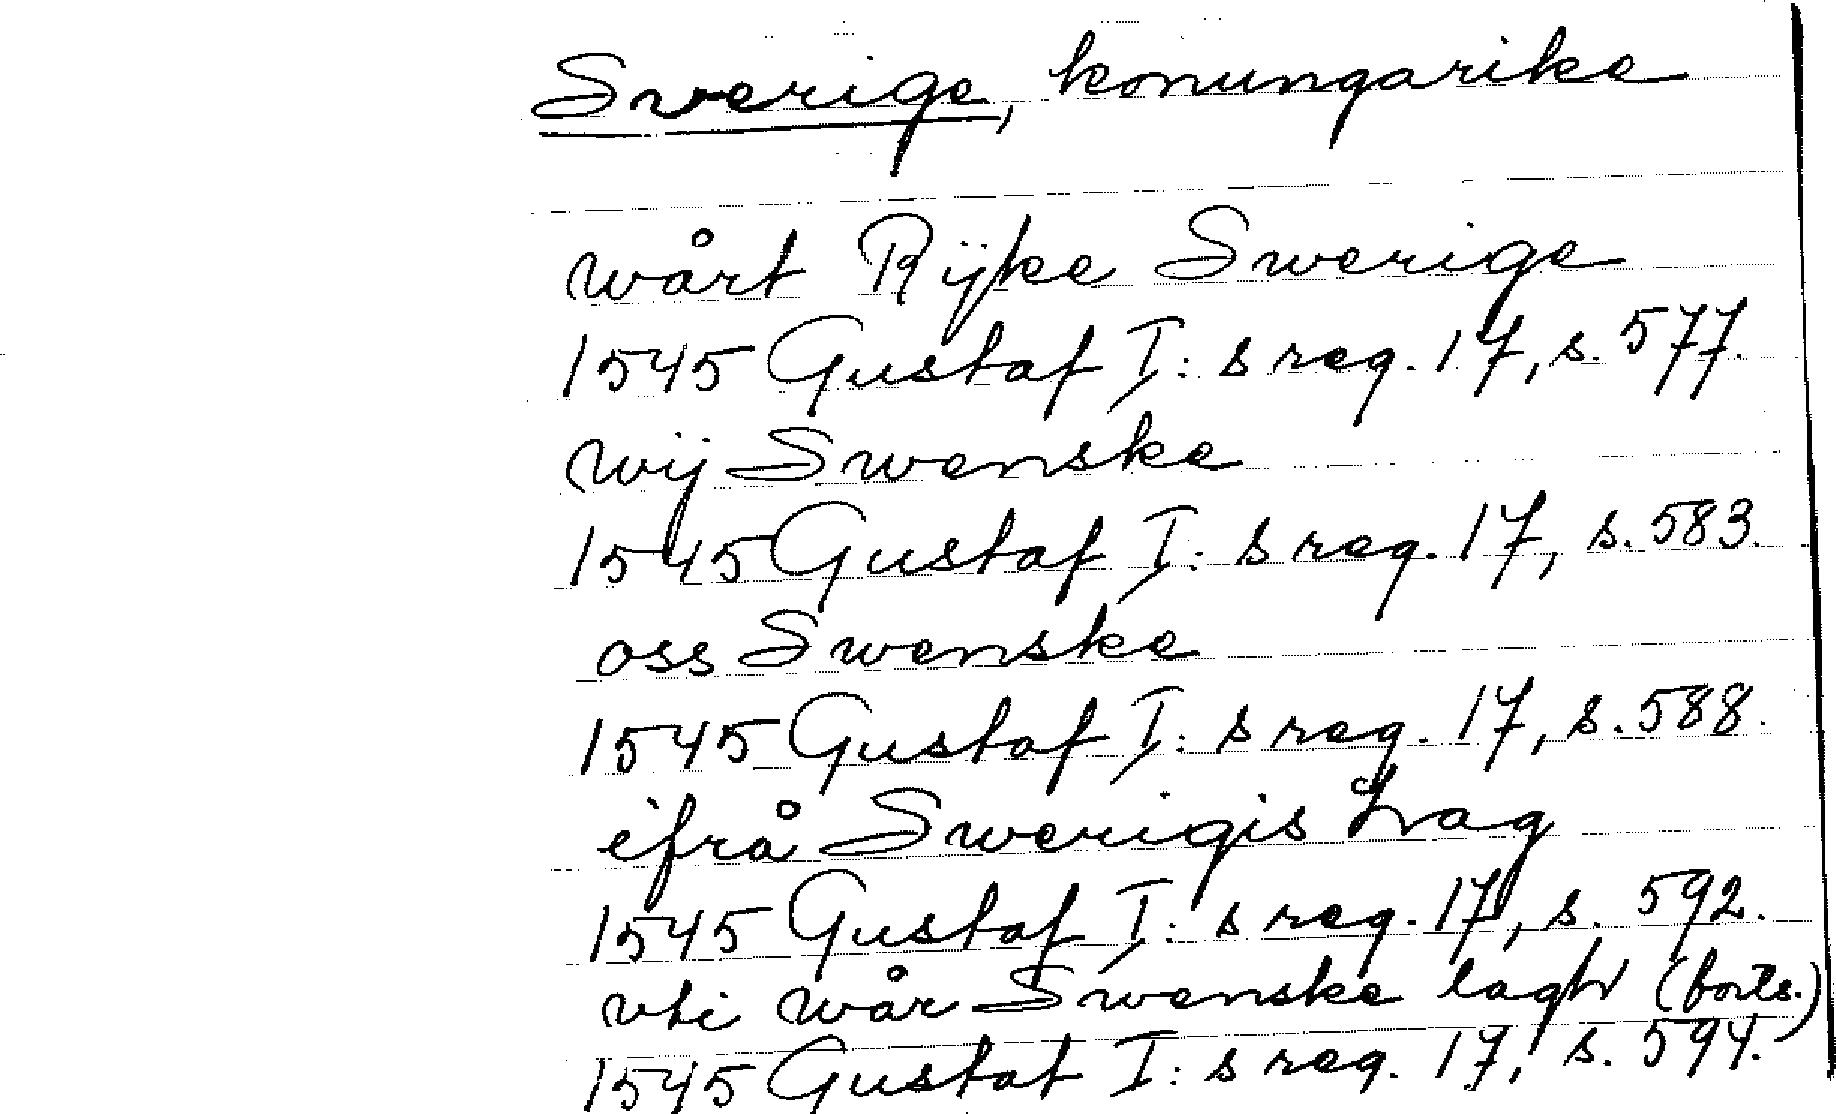 Sverige, konungarike
wårt Rijke Swerige
1545 Gustaf I:s reg. 17, s. 577.
wij Swenske
1545 Gustaf I:s reg. 17, s. 583.
oss Swenske
1545 Gustaf I:s reg. 17, s. 588.
ifrå Swerigis Lag
1545 Gustaf I:s reg. 17, s. 592.
vti wår Swenske lagh (forts.)
1545 Gustaf I:s reg. 17, s. 594.